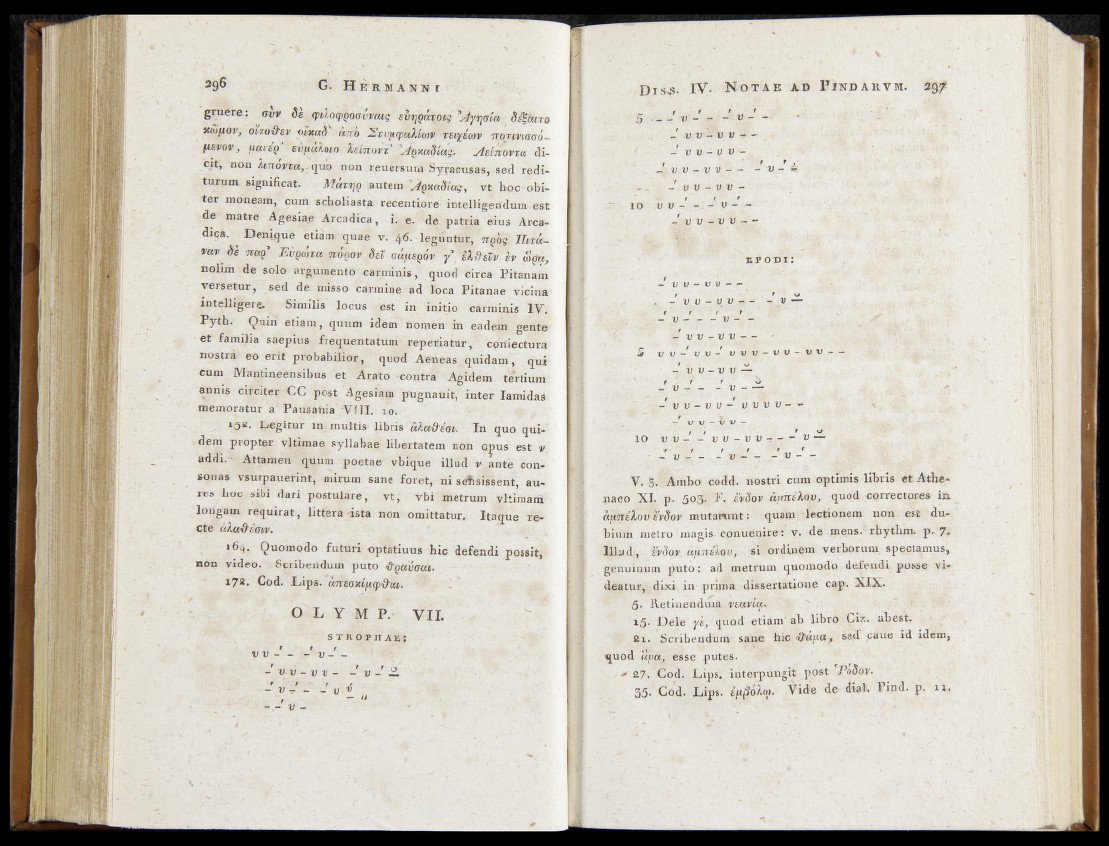 296 G. HERMANNI
gruere: σὺν δὲ φιλοφροσύναις εὐηράτοις Ἀγησία δέξαιτο
κῶμον, οἴκοθεν οἴκαδ' ἀπὸ Στυμφαλίων τειχέων ποτινισσό-
μενον, ματέρ' εὐμάλοιο λείποντ' Ἀρκαδίας. Λείποντα di-
cit, non λιπόντα, quo non reuersum Syracusas, sed redi-
turum significat. Μάτηρ autem Ἀρκαδίας, vt hoc obi-
ter moneam, cum scholiasta recentiore intelligendum est
de matre Agesiae Arcadica, i. e. de patria eius Arca-
dica. Denique etiam quae v. 46. leguntur, πρὸς Πιτά-
ναν δὲ παρ' Εὐρώτα πόρον δεῖ σάμερόν γ' ἐλθεῖν ἐν ὥρᾳ,
nolim de solo argumento carminis, quod circa Pitanam
versetur, sed de misso carmine ad loca Pitanae vicina
intelligere. Similis locus est in initio carminis IV.
Pyth. Quin etiam, quum idem nomen in eadem gente
et familia saepius frequentatum reperiatur, coniectura
nostra eo erit probabilior, quod Aeneas quidam, qui
cum Mantineensibus et Arato contra Agidem tertium
annis circiter CC post Agesiam pugnauit, inter Iamidas
memoratur a Pausania VIII. 10.
152. Legitur in multis libris ἀλαθέσι. In quo qui-
dem propter vltimae syllabae libertatem non opus est ν
addi. Attamen quum poetae vbique illud ν ante con-
sonas vsurpauerint, mirum sane foret, ni sensissent, au-
res hoc sibi dari postulare, vt, vbi metrum vltimam
longam requirat, littera ista non omittatur. Itaque re-
cte ἀλαθέσιν.
164. Quomodo futuri optatiuus hic defendi possit,
non video. Scribendum puto θραύσαι.
172. Cod. Lips. ἀπεσκίμφθαι.
OLYMP. VII.
STROPHAE:
υ υ –́ – –́ υ –́ –
–́ υ υ – υ υ – –́ υ –́ ⏓
–́ υ –́ – –́ υ ύ
– –́ υ –
DISS. IV. NOTAE AD PINDARVM. 297
5 – –́ υ –́ – –́ υ –́ –
–́ υ υ – υ υ – –
–́ υ υ – υ υ –
–́ υ υ – υ υ – – –́ υ –́ ⏓
–́ υ υ – υ υ –
10 υ υ –́ – –́ υ –́ –
–́ υ υ – υ υ – –
EPODI:
–́ υ υ – υ υ – –
–́ υ υ – υ υ – – –́ υ ⏓
–́ υ –́ – – υ –́ –
–́ υ υ – υ υ – –
5 υ υ –́ υ υ –́ υ υ υ – υ υ – υ υ – –
–́ υ υ – υ υ ⏓
–́ υ –́ – –́ υ – ⏓
–́ υ υ – υ υ –́ υ υ υ υ – –
–́ υ υ – υ υ –
10 υ υ –́ –́ υ υ – υ υ – – –́ υ ⏓
–́ υ –́ – –́ υ –́ – –́ υ –́ –
V. 3. Ambo codd. nostri cum optimis libris et Athe-
naeo XI. p. 503. F. ἔνδον ἀμπέλου, quod correctores in
ἀμπέλου ἔνδον mutarunt: quam lectionem non est du-
bium metro magis conuenire: v. de mens. rhythm. p. 7.
Illud, ἔνδον ἀμπέλου, si ordinem verborum spectamus,
genuinum puto: ad metrum quomodo defendi posse vi-
deatur, dixi in prima dissertatione cap. XIX.
5. Retinendum νεανίᾳ.
15. Dele γὲ, quod etiam ab libro Ciz. abest.
21. Scribendum sane hic θάμα, sed caue id idem,
quod ἅμα, esse putes.
27. Cod. Lips. interpungit post Ῥόδον.
35. Cod. Lips. ἐμβόλῳ. Vide de dial. Pind. p. 11.